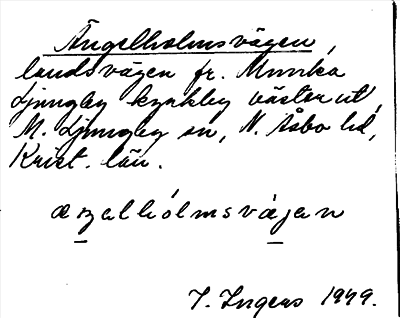 Ängelholmsvägen,
landsvägen fr. Munka
Ljungby kyrkby väster ut,
M. Ljungby sn, N. Åsbo hd,
Krist. län.
æŋalhólmsvæ̀jan
I. Ingers 1949.